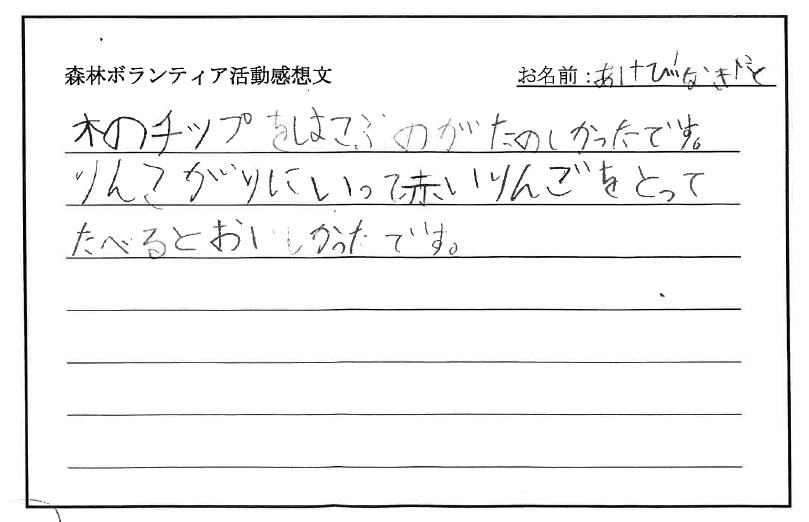 森林ボランティア活動感想文
お名前：あけびなぎさと
木のチップをはこぶのがたのしかったです。
りんごがりにいって赤いりんごをとって
たべるとおいしかったです。